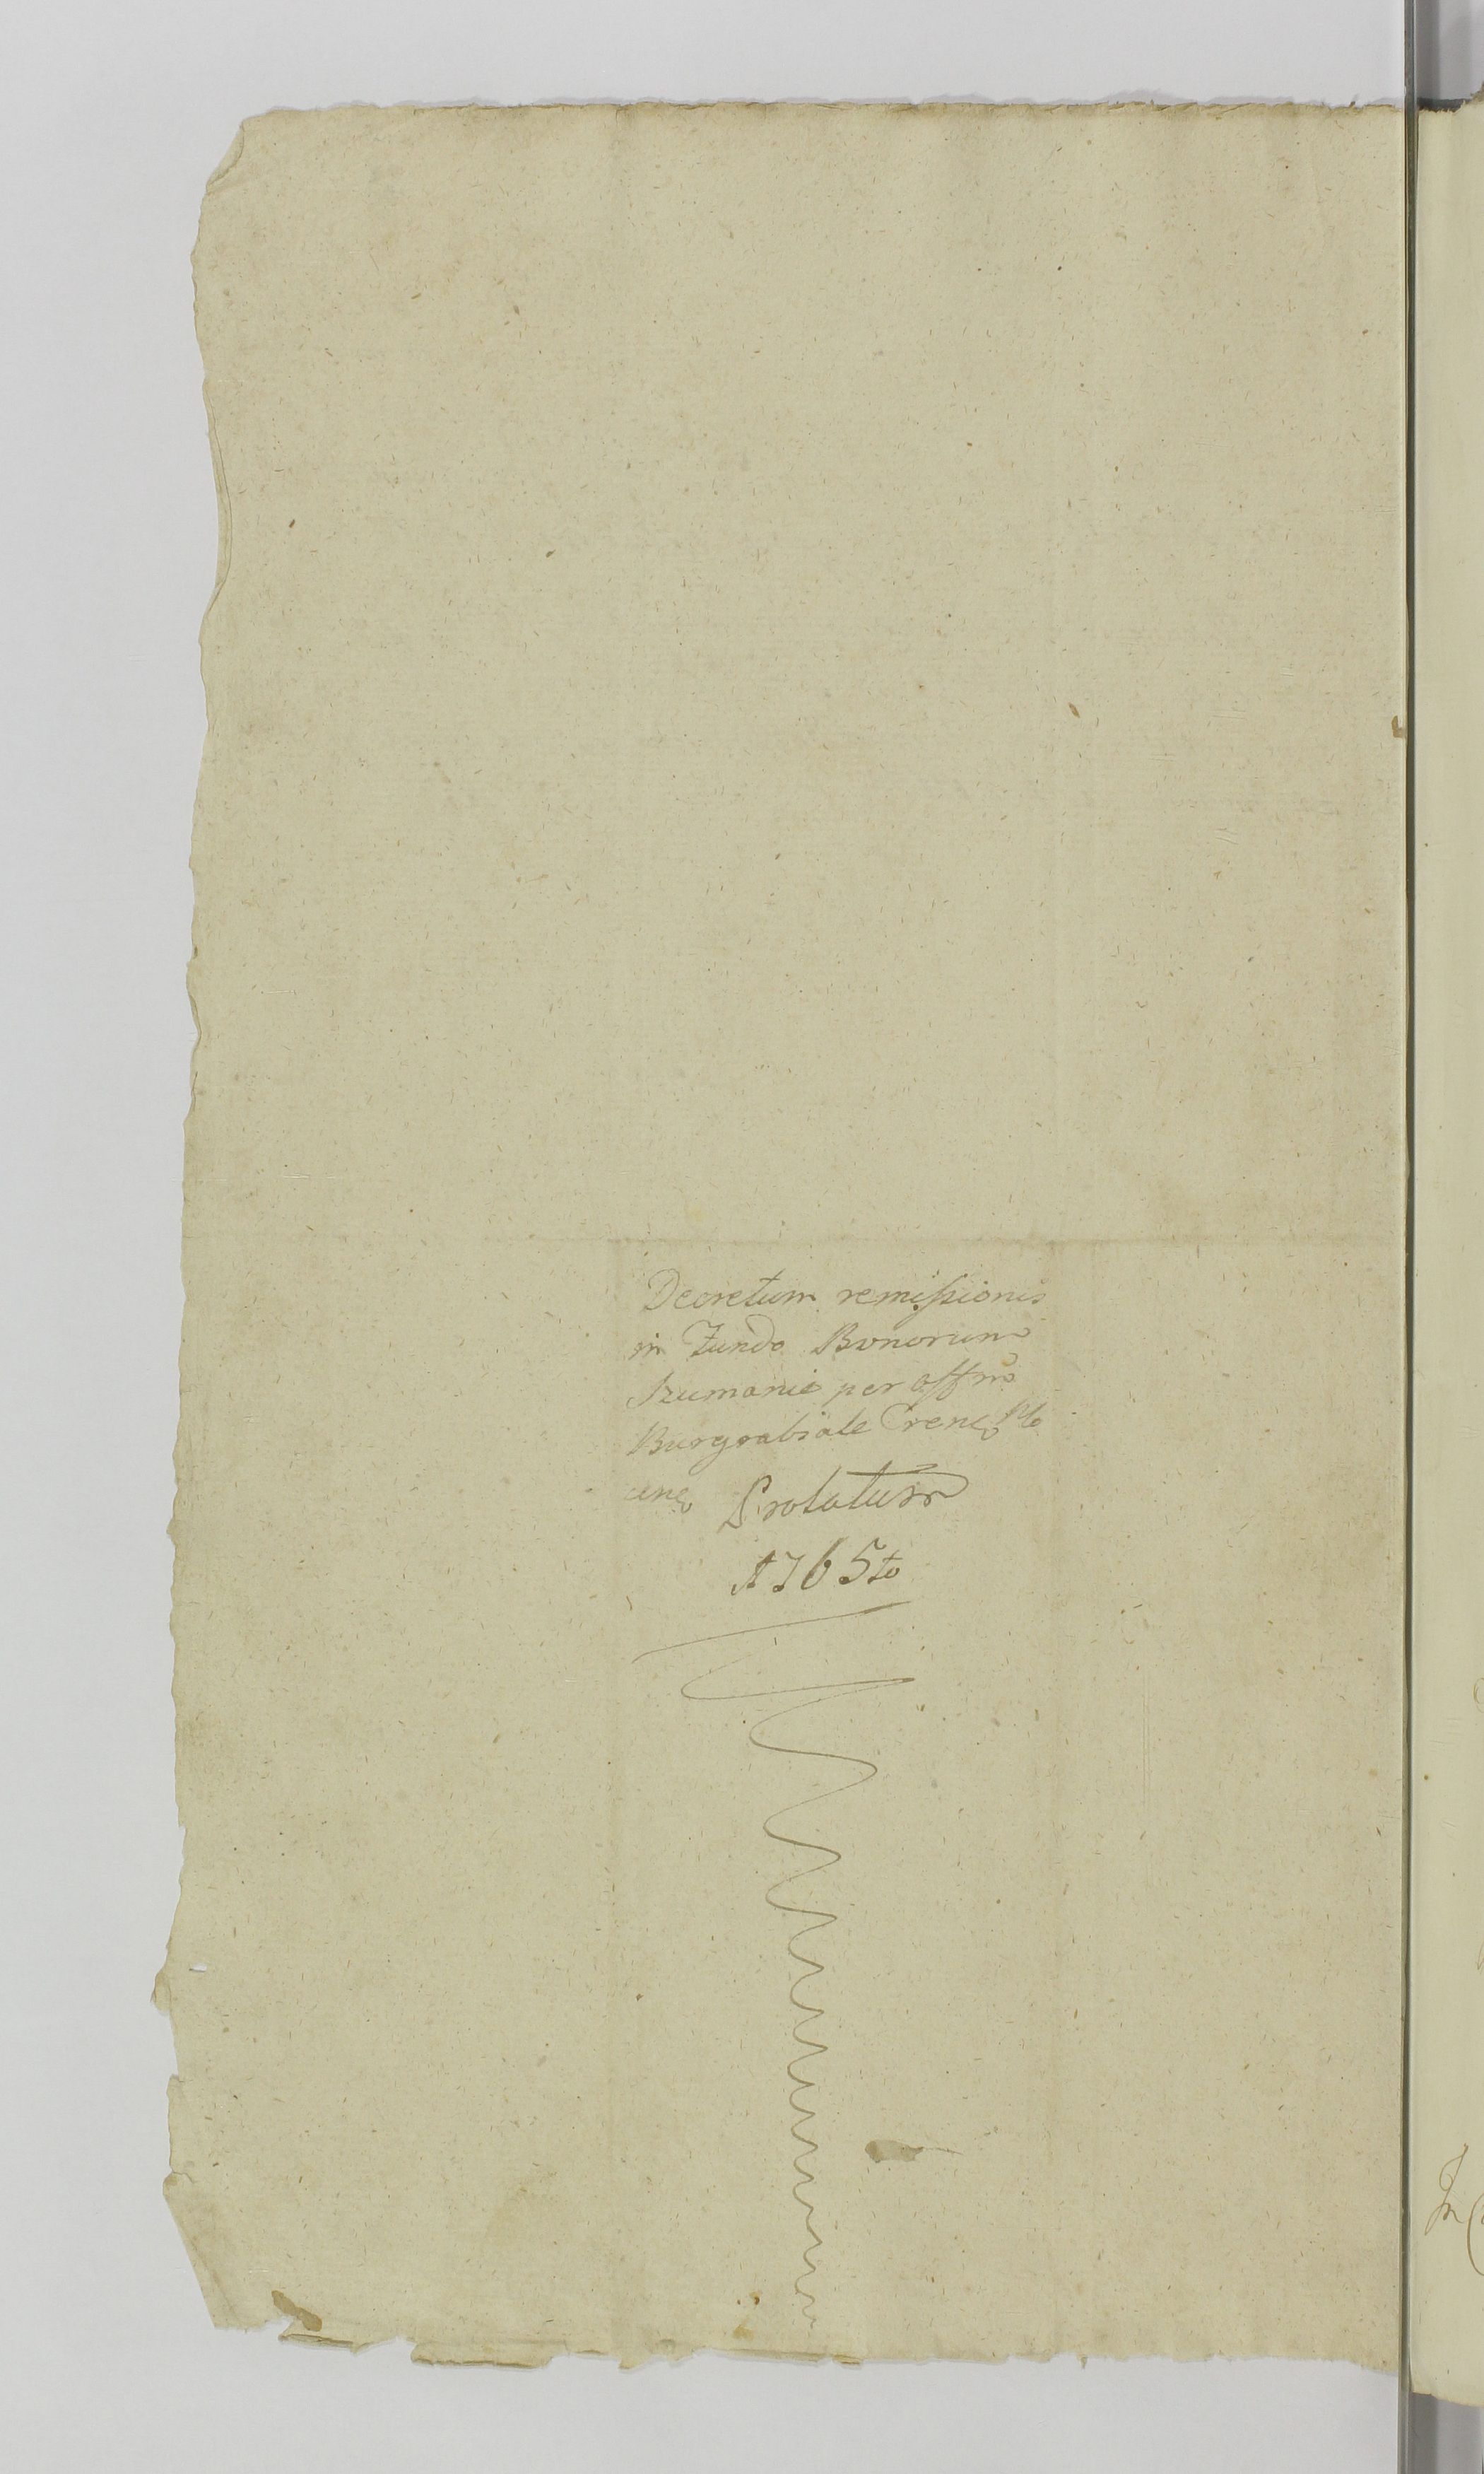 Decretum remissionis
in Fundo Bonorum
Szumanie per offm
Burgrabiale
Prolatum
A 765to
In